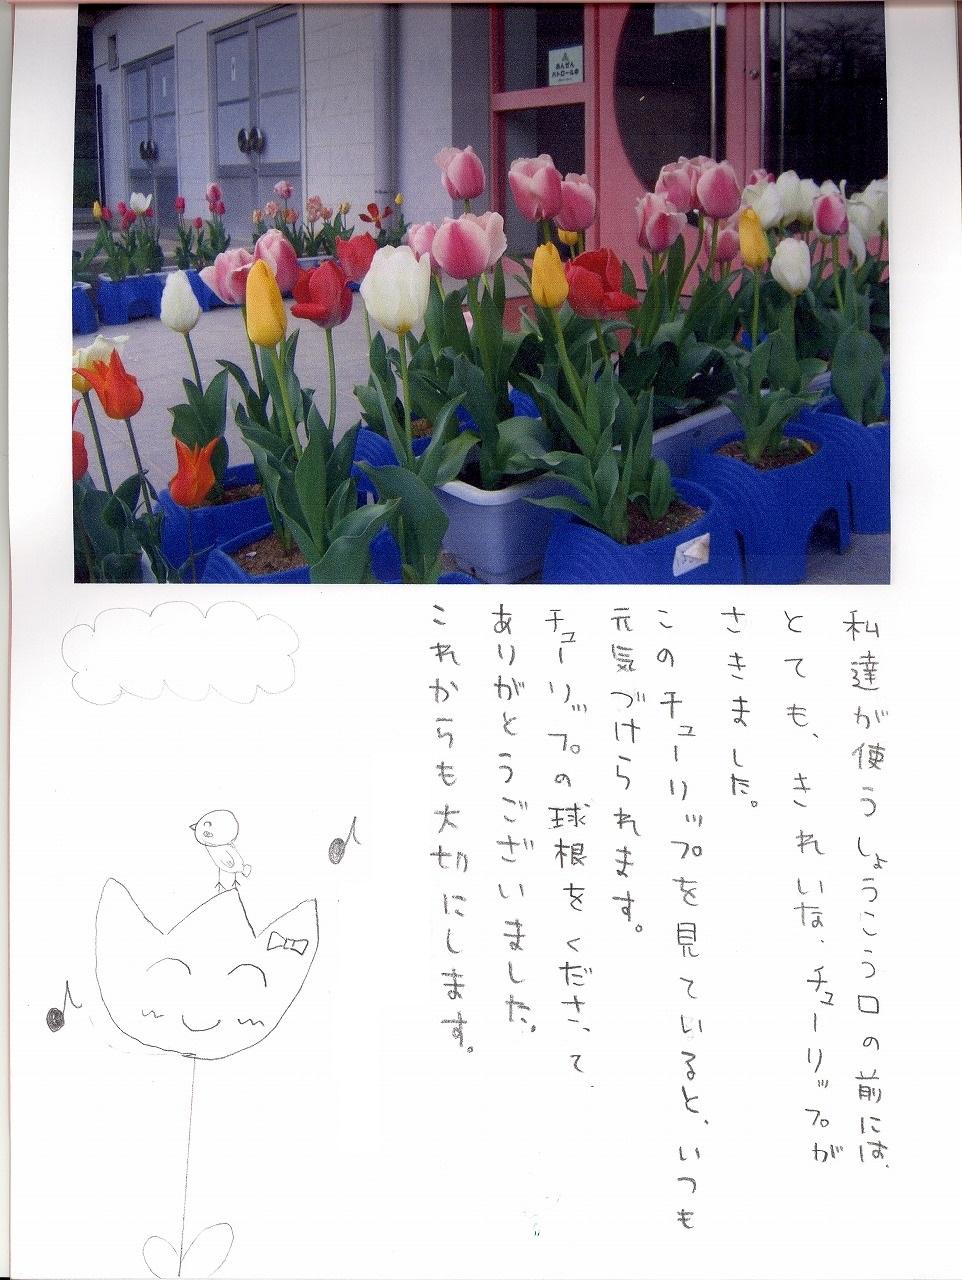 あんぜん
パトロール中
私達が使うしょうこう口の前には、
とても、きれいな、チューリップが
さきました。
このチューリップを見ていると、いつも
元気づけられます。
チューリップの球根をくださって
ありがとうございました。
これからも大切にします。